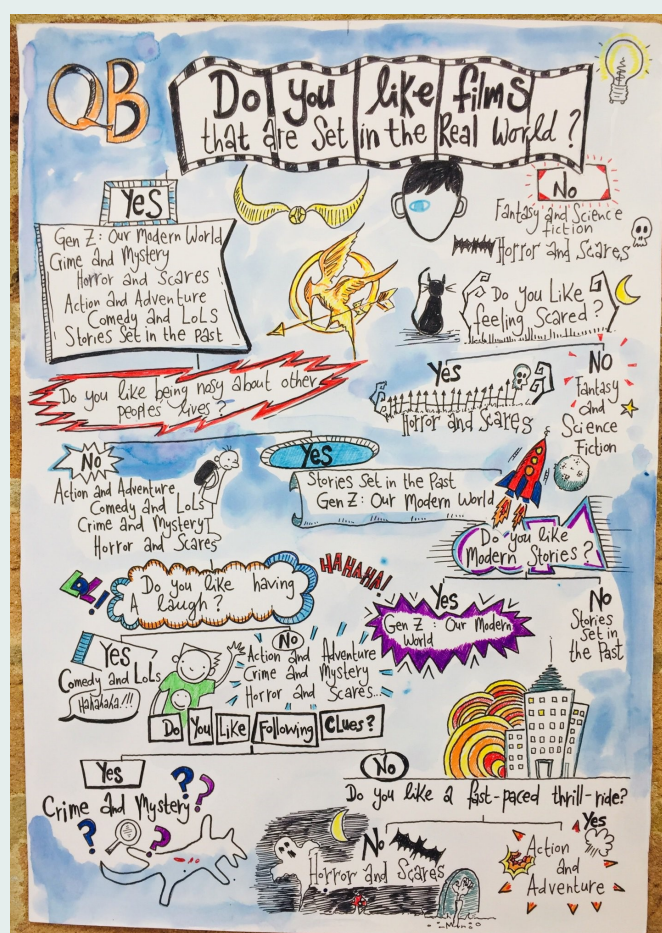 QB
Do you like films
that are Set in the Real World?
Yes
Gen Z: Our Modern World
Crime and Mystery
Horror and Scares
Action and Adventure
Comedy and LoLs
Stories Set in the Past
No
Fantasy and Science
fiction
Horror and Scares
Do You Like
feeling Scared?
Yes
Horror and Scares
No
Fantasy
and
Science
Fiction
Do you like being nosy about other
peoples lives?
No
Action and Adventure
Comedy and LoLs
Crime and Mystery
Horror and Scares
Yes
Stories Set in the Past
Gen Z: Our Modern World
Do you like
Modern Stories?
Yes
Gen Z: Our Modern
World
No
Stories
Set in
the Past
LOL!
Do you like having
A laugh?
HAHAHA!
Yes
Comedy and LoLs
Hahahaha!!!
No
Action and Adventure
Crime and Mystery
Horror and Scares...
Do You Like Following Clues?
Yes
Crime and Mystery
No
Do you like a fast-paced thrill-ride?
No
Horror and Scares
Yes
Action
and
Adventure